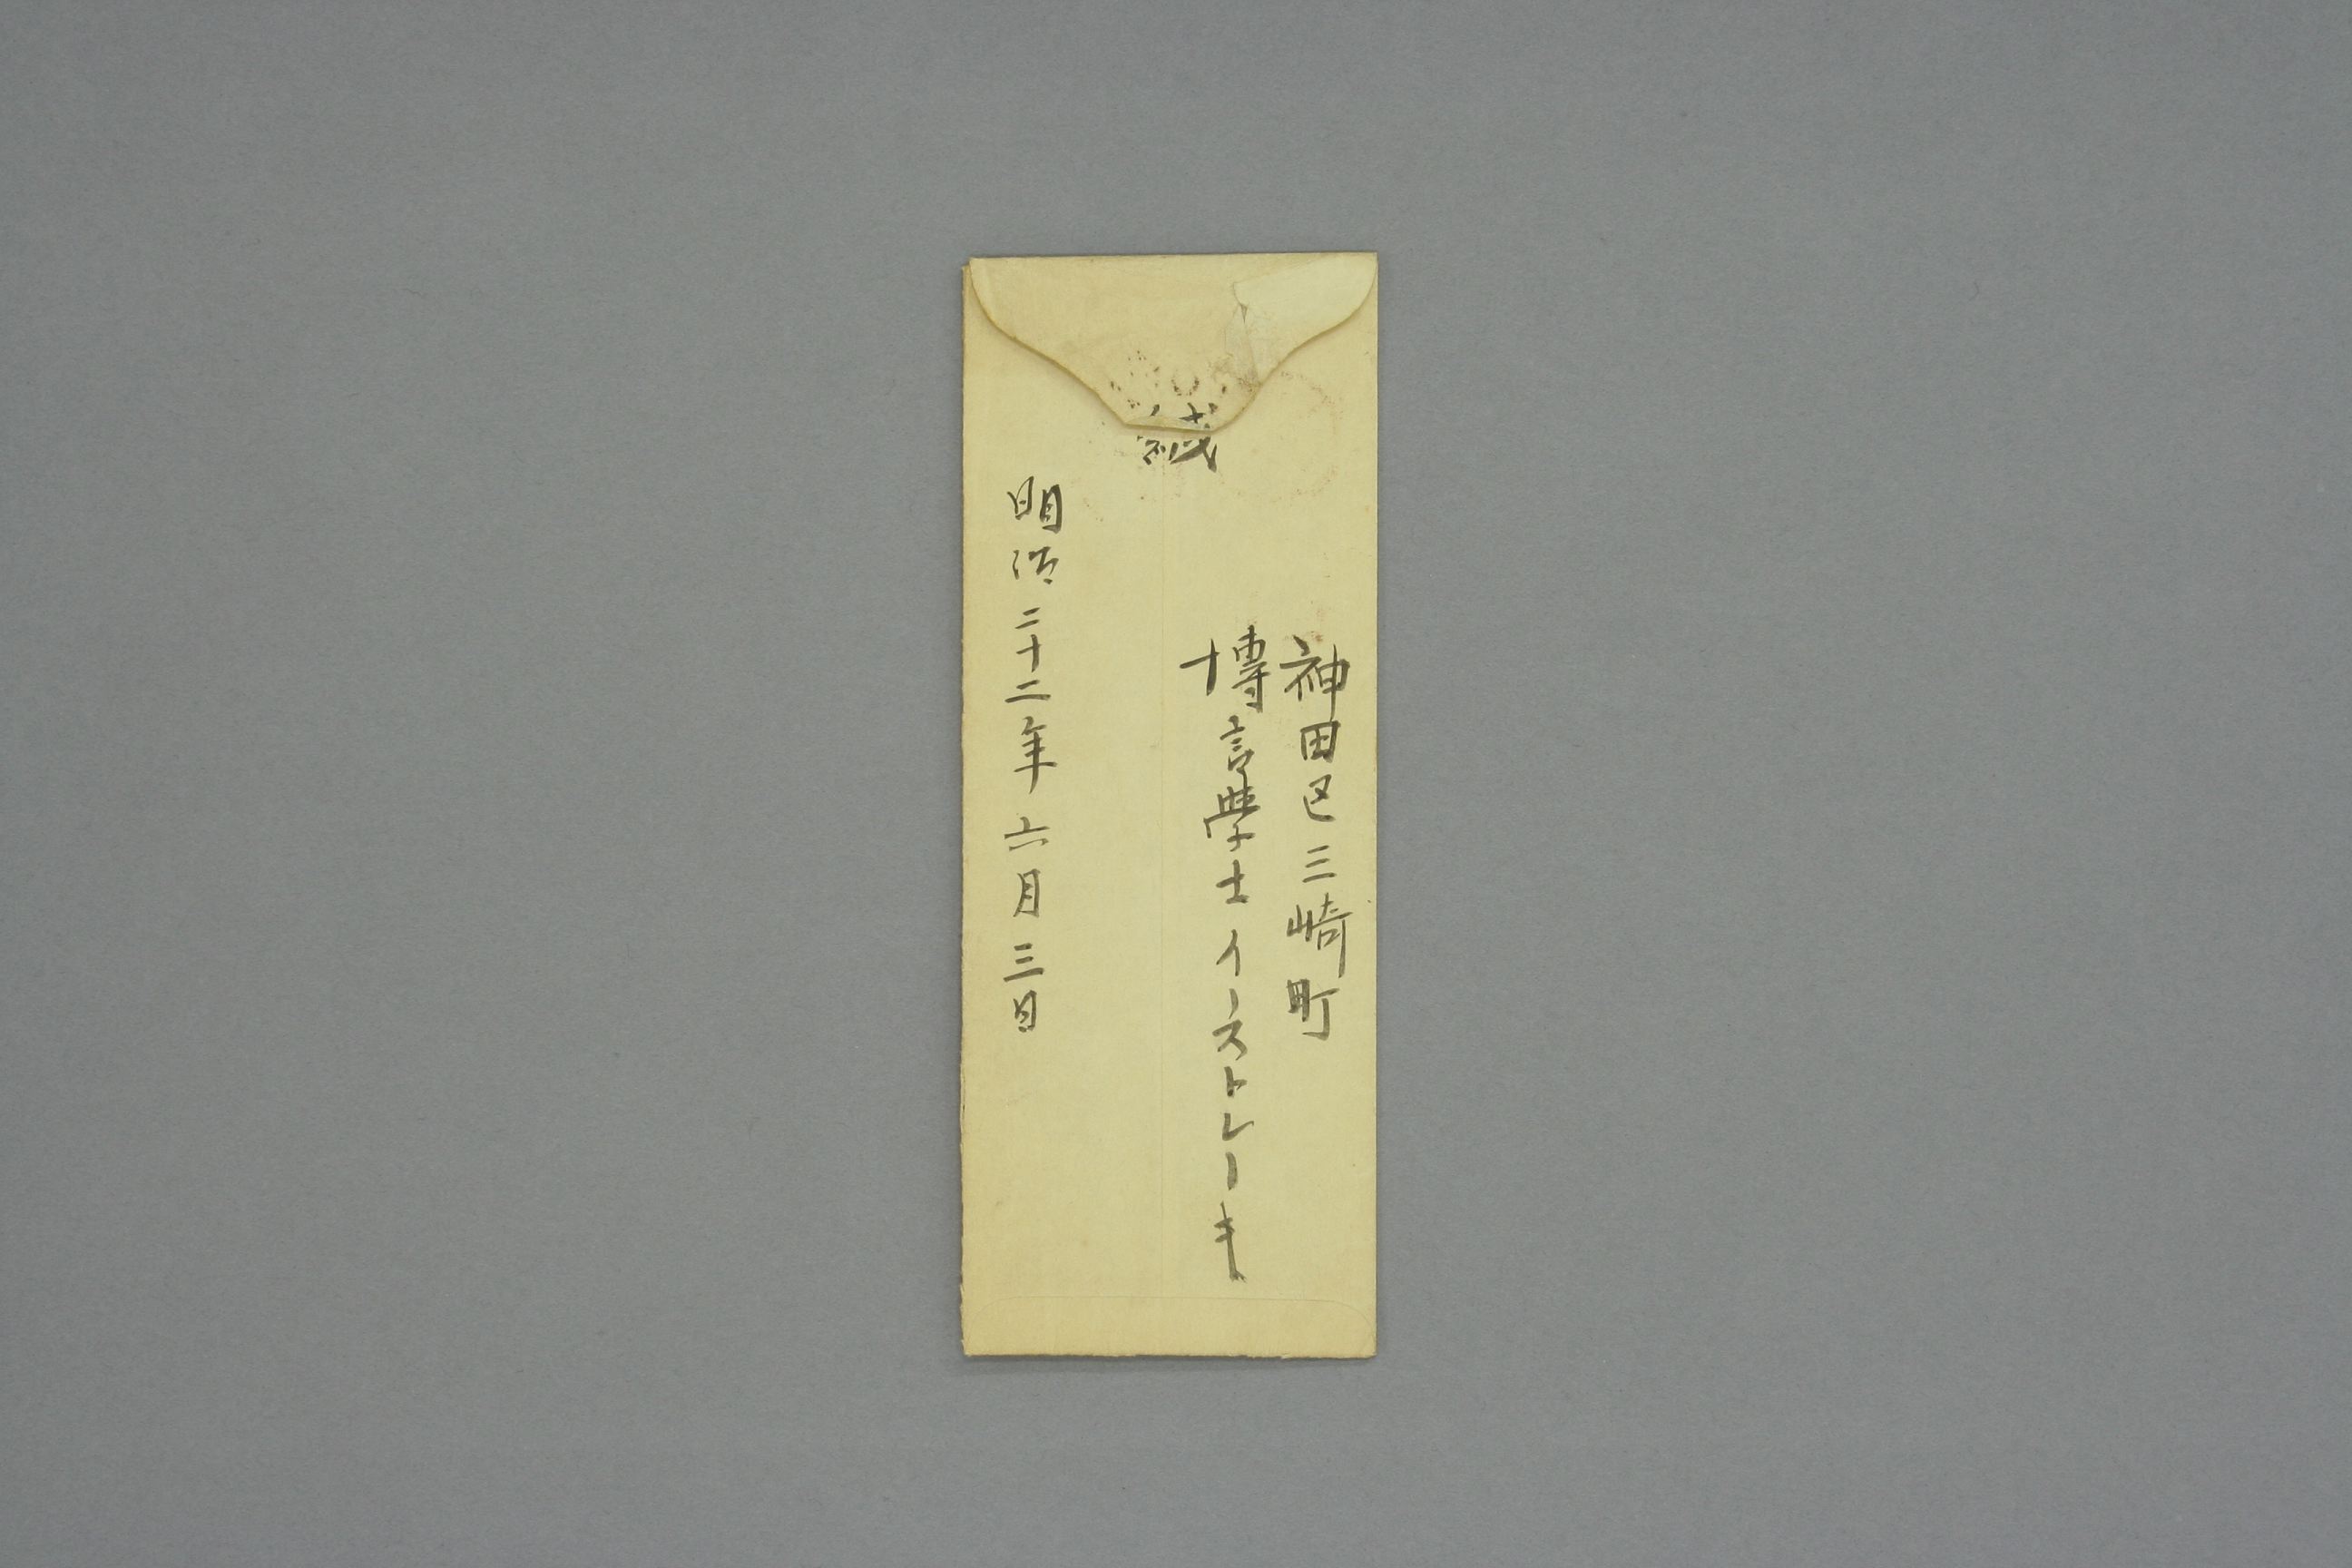 緘
神田区三崎町
博言學士イーストレーキ
明治二十二年六月三日